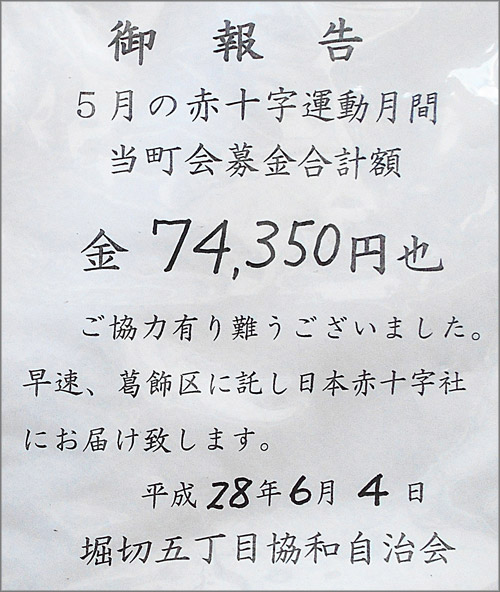 御報告
５月の赤十字運動月間
当町会募金合計額
金 74,350円也
ご協力有り難うございました。
早速、葛飾区に託し日本赤十字社
にお届け致します。
平成 28年 6月 4日
堀切五丁目協和自治会